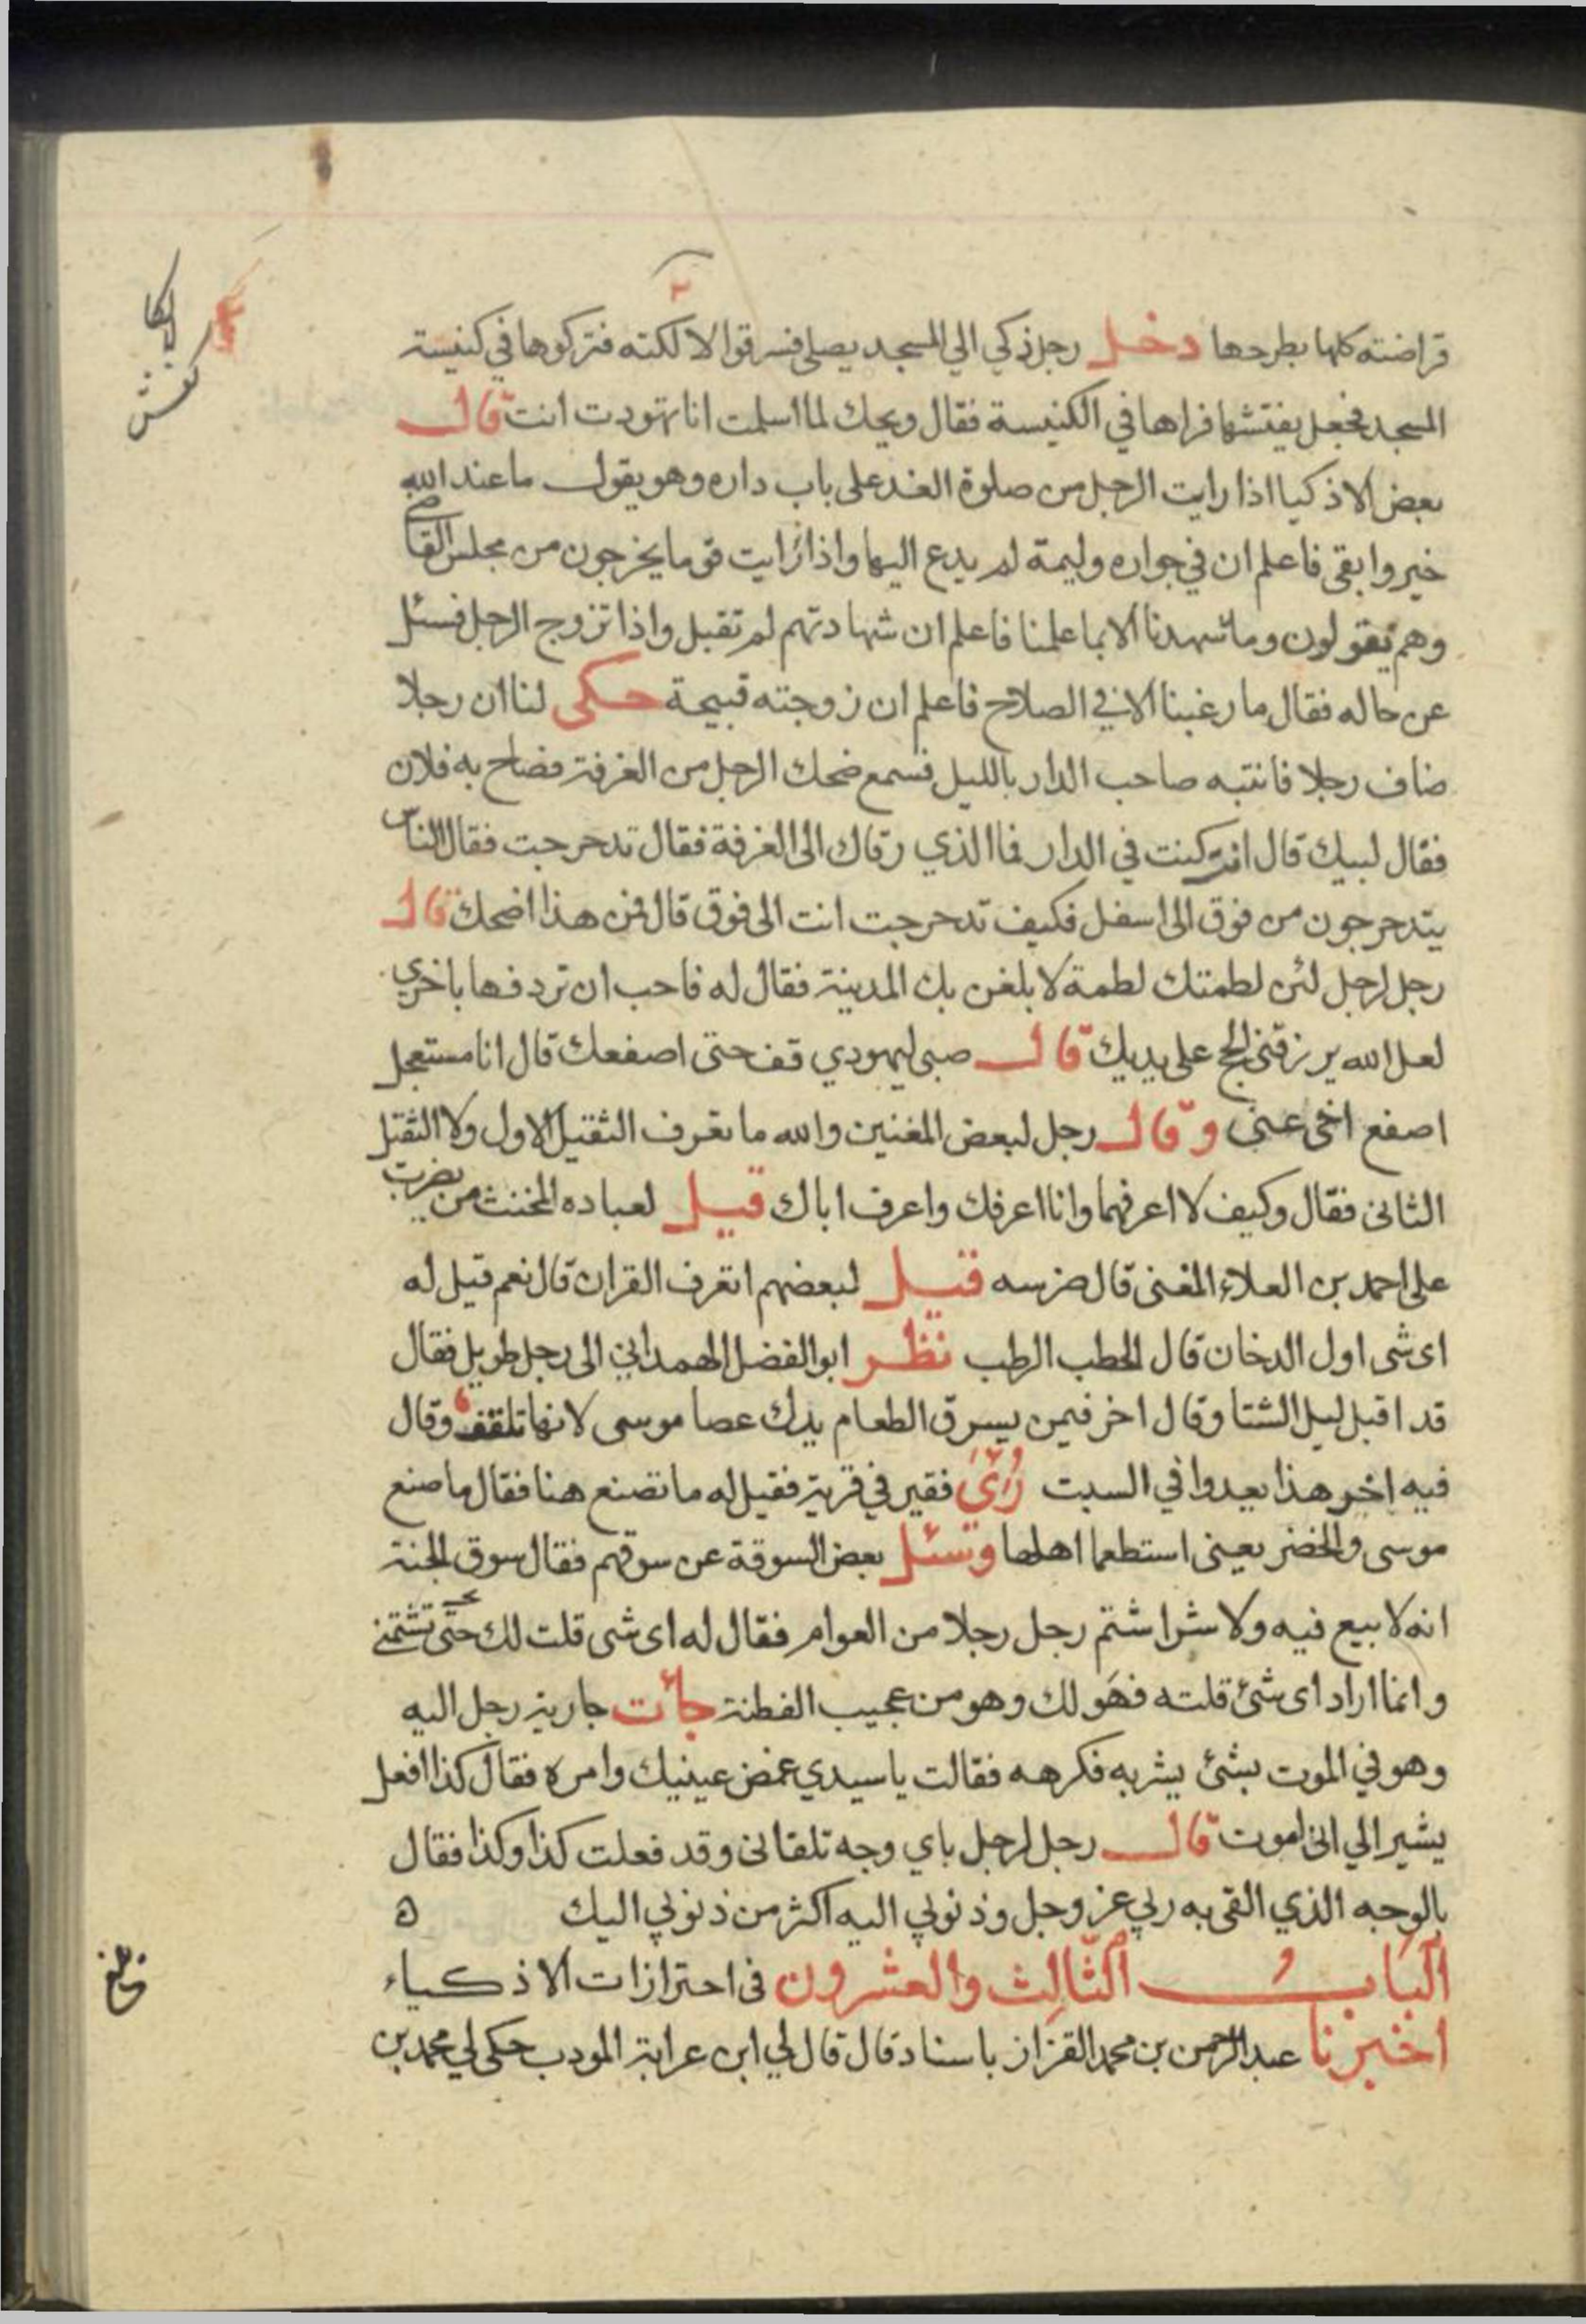 قراضته كلها يطرحها دخل رجل ذكي الي المسجد يصلي فسرقوا لالكته فتركوها في كنيسة
المسجد فجعل يفتشها فراها في الكنيسة فقال ويحك لما اسلمت انا تهودت انت قال
بعض الاذكيا اذا رايت الرجل من صلوة الغد على باب داره وهو يقول ما عند الله
خير وابقى فاعلم ان في جواره وليمة لم يدع اليها واذا رايت قوما يخرجون من مجلس القاضي
وهم يقولون وما شهدنا الا بما علمنا فاعلم ان شهادتهم لم تقبل واذا تزوج الرجل فسئل
عن حاله فقال ما رغبنا الا في الصلاح فاعلم ان زوجته قبيحة حكى لنا ان رجلا
ضاف رجلا فانتبه صاحب الدار بالليل فسمع ضحك الرجل من الغرفة فصاح به فلان
فقال لبيك قال انت كنت في الدار فما الذي رقاك الى الغرفة فقال تدحرجت فقال الناس
يتدحرجون من فوق الى اسفل فكيف تدحرجت انت الى فوق قال فمن هذا اضحك قال
رجل لرجل لئن لطمتك لطمة لابلغن بك المدينة فقال له فاحب ان تردفها باخري
لعل الله يرزقني الحج على يديك قال صبى ليهودي قف حتى اصفعك قال انا مستعجل
اصفع اخى عنى وقال رجل لبعض المغنين والله ما تعرف الثقيل الاول ولا الثقل
الثانى فقال وكيف لا اعرفهما وانا اعرفك واعرف اباك قيل لعباده المخنث من يضرب
على احمد بن العلاء المغنى قال ضرسه قيل لبعضهم اتعرف القران قال نعم قيل له
اى شى اول الدخان قال الحطب الرطب نظر ابو الفضل الهمداني الى رجل طويل فقال
قد اقبل ليل الشتا وقال اخر فيمن يسرق الطعام يدك عصا موسى لانها تلقف وقال
فيه اخر هذا يعدوا في السبت رُئىَ فقير في قرية فقيل له ما تصنع هنا فقال ما صنع
موسى والخضر يعنى استطعما اهلها وسئل بعض السوقة عن سوقهم فقال سوق الجنة
انه لا بيع فيه ولا شرا شتم رجل رجلا من العوام فقال له اى شى قلت لك حتى تشتمني
وانما اراد اى شئ قلته فهَو لك وهو من عجيب الفطنة جأت جارية رجل اليه
وهو في الموت بشئ يشربه فكرهه فقالت يا سيدي غمض عينيك وامره فقال كذا افعل
يشير الي انى اموت قال رجل لرجل باي وجه تلقانى وقد فعلت كذا وكذا فقال
بالوجه الذي القى به ربي عز وجل وذنوبي اليه اكثر من ذنوبي اليك ه
اَلبَابُ الثَّالِث والعشرون فى احترازات الاذكياء
اخبرنا عبد الرحمن بن محمد القزاز باسناد قال قال لي ابن عرابة المودب حكى لي محمد بن